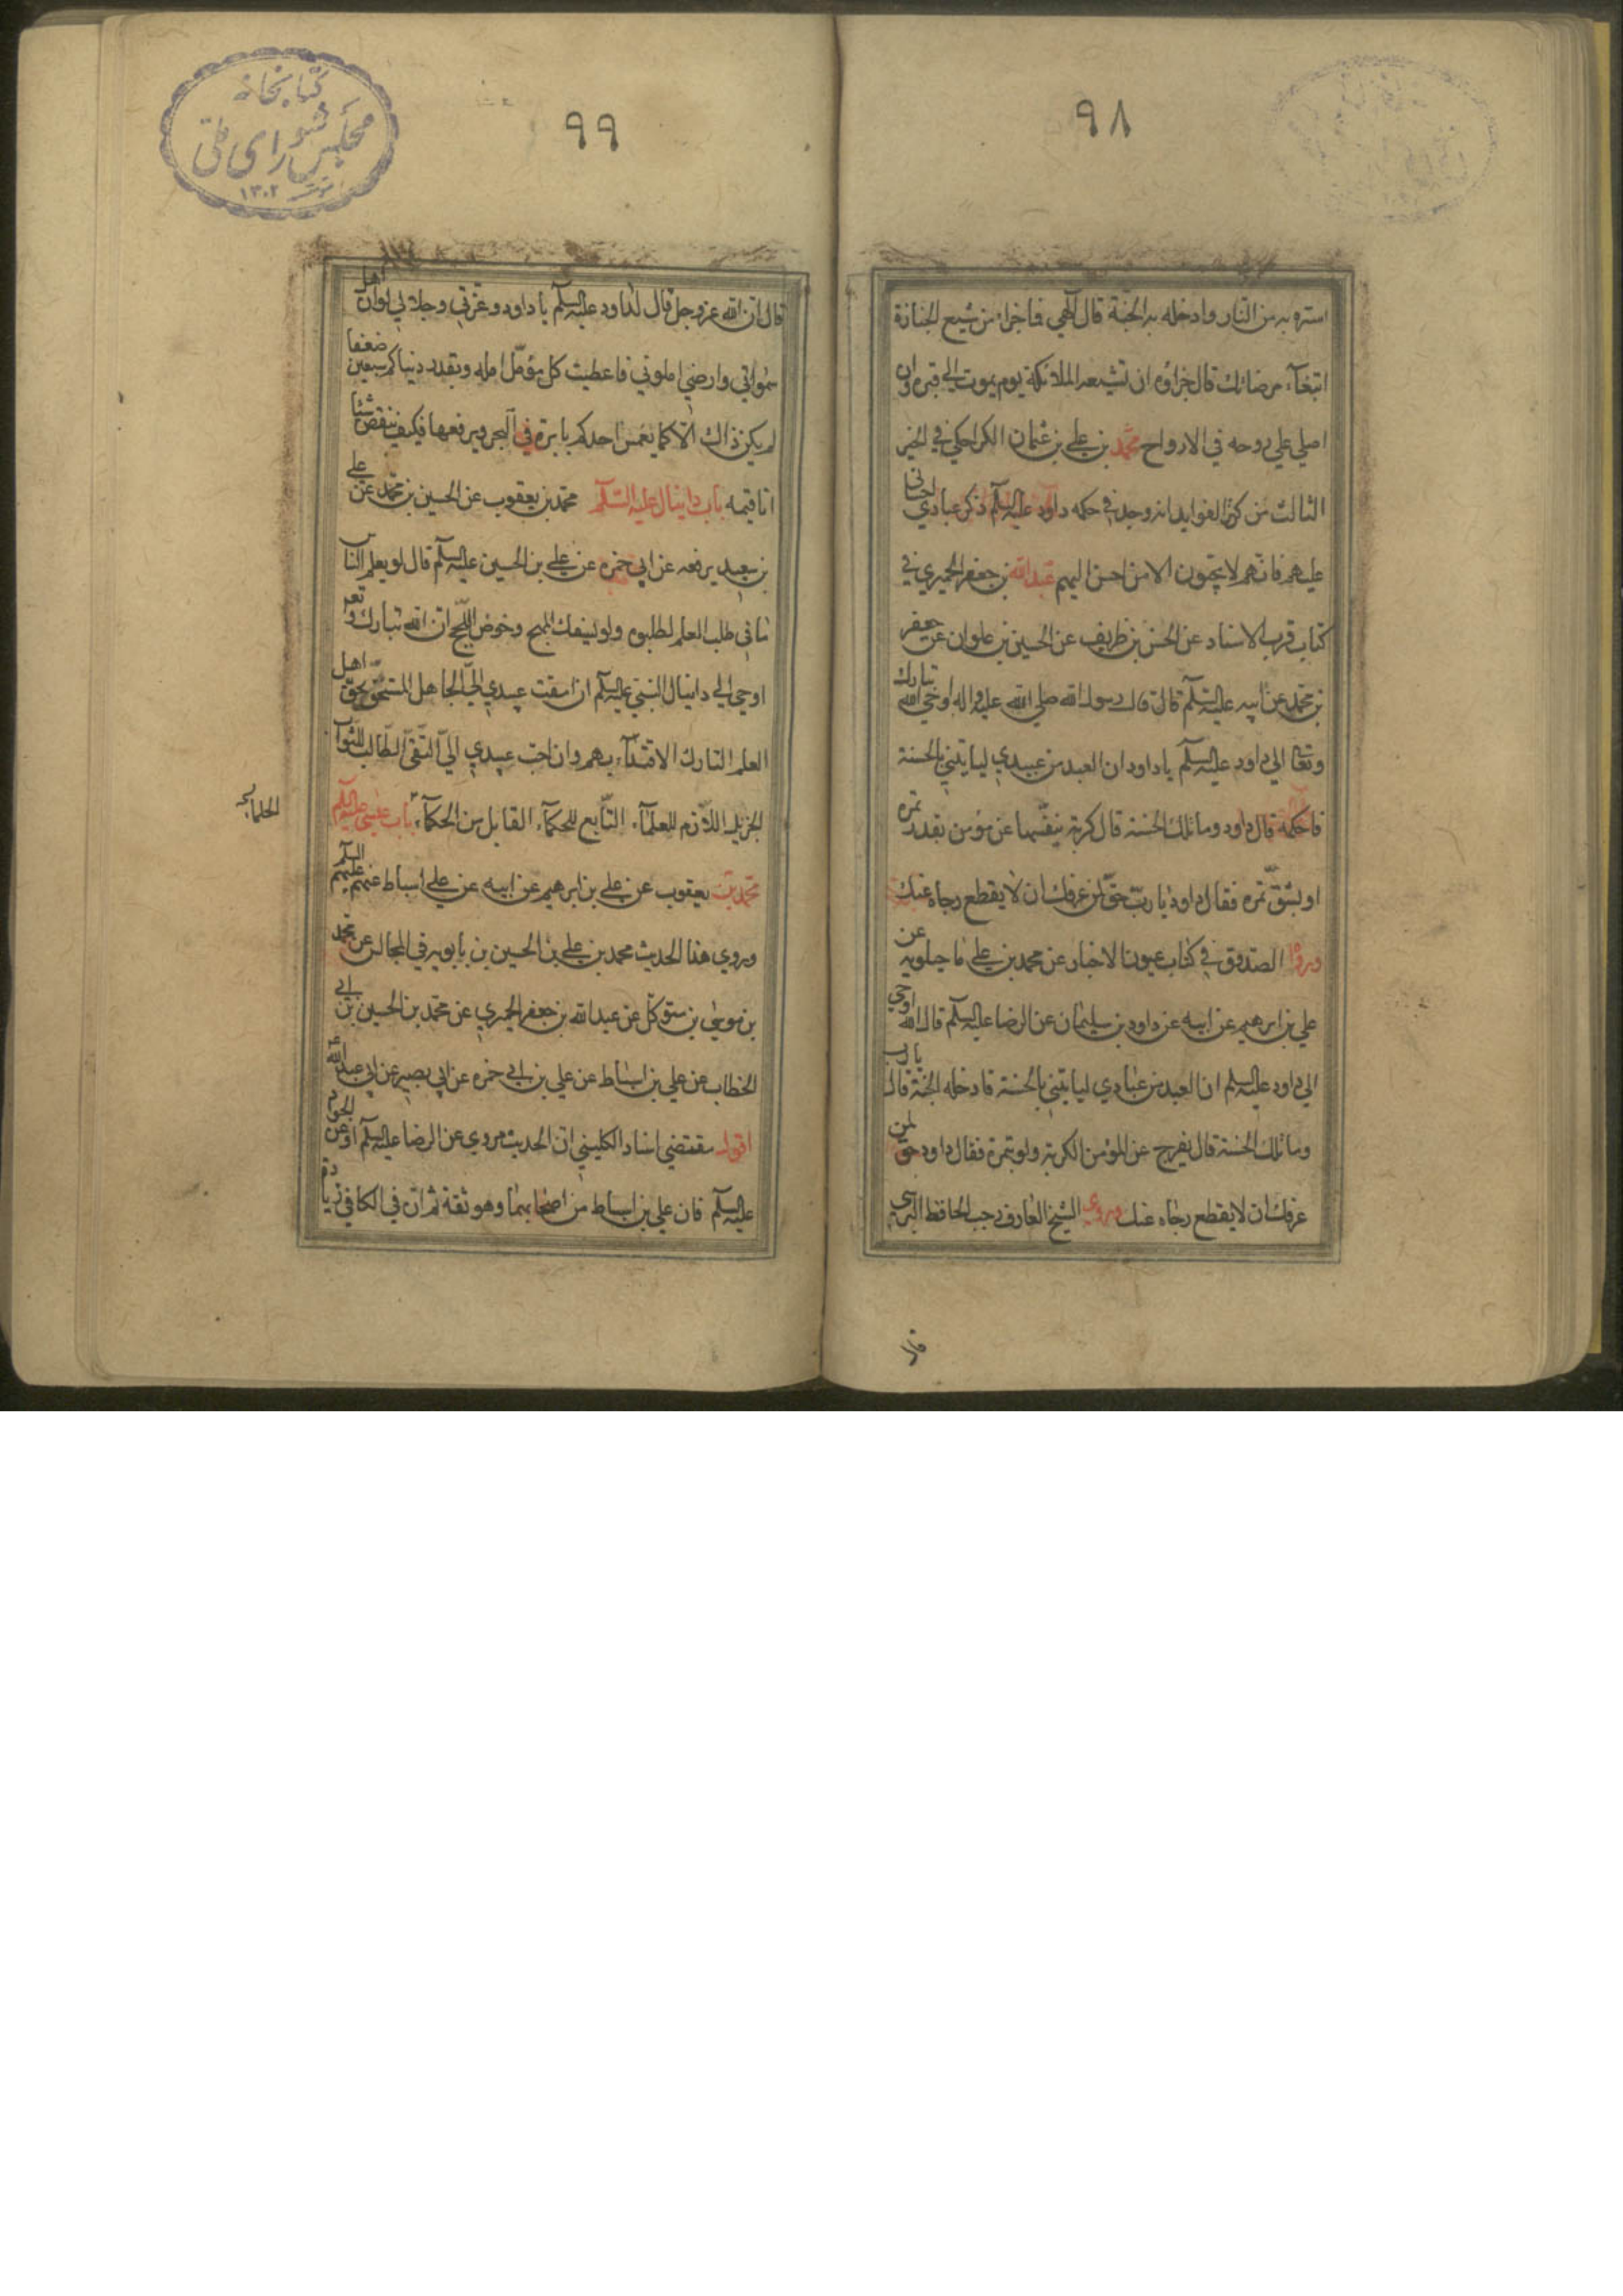 ٩٨
استره به من النار وادخله به الجنة قال الهي فما جزاء من شيع الجنازة
ابتغاء مرضاتك قال جزاؤه ان تشيعه الملائكة يوم يموت الى قبره وان
اصلي على روحه في الارواح محمد بن علي بن عثمان الكراجكي في الجزء
الثالث من كنز الفوايد انه وجد في حكمه داود عليه السلم ذكر عبادي احساني
عليهم فانهم لا يحبون الا من احسن اليهم عبد الله بن جعفر الحميري في
كتاب قرب الاسناد عن الحسن بن ظريف عن الحسين بن علوان عن جعفر
بن محمد عن ابيه عليه السلم قال قال رسول الله صلى الله عليه واله اوحى الله تبارك
وتعالى الى داود عليه السلم يا داود ان العبد من عبيدي لياتيني بالحسنة
فاحكمه قال داود وما تلك الحسنة قال كربة ينفسها عن مؤمن بقدر تمرة
او بشق تمرة فقال داود يا رب حق لمن عرفك ان لا يقطع رجاه عنك
ورواه الصدوق في كتاب عيون الاخبار عن محمد بن علي ماجيلويه عن
علي بن ابرهيم عن ابيه عن داود بن سليمان عن الرضا عليه السلم قال اوحى الله
الى داود عليه السلم ان العبد من عبادي لياتيني بالحسنة فادخله الجنة قال يا رب
وما تلك الحسنة قال يفرج عن المؤمن الكربة ولو بتمرة فقال داود حق لمن
عرفك ان لا يقطع رجاه عنك وروى الشيخ العارف رجب الحافظ البرسي
قال
٩٩
كتابخانه
مجلس شورای ملی
١٣٠٢
قال ان الله عز وجل قال لداود عليه السلم يا داود وعزتي وجلالي لو ان اهل
سمواتي وارضي املوني فاعطيت كل مؤمل امله وبقدر دنياكم سبعين ضعفا
لم يكن ذاك الا كما يغمس احدكم بابرة في البحر ويرفعها فكيف ينقص شيئا
انا قيمه باب دانيال عليه السلم محمد بن يعقوب عن الحسين بن محمد عن علي
بن سعيد يرفعه عن ابي حمزه عن علي بن الحسين عليه السلم قال لو يعلم الناس
ما في طلب العلم لطلبوه ولو بسفك المهج وخوض اللجج ان الله تبارك وتعالى
اوحى الى دانيال النبي عليه السلم ان امقت عبيدي الي الجاهل المستخف بحق اهل
العلم التارك الاقتداء بهم وان احب عبيدي الي التقي الطالب للثواب
الجزيل اللازم للعلماء التابع للحكماء القابل من الحكماء باب عيسى عليه السلم
محمد بن يعقوب عن علي بن ابرهيم عن ابيه عن علي اسباط عنهم عليهم السلم
وروى هذا الحديث محمد بن علي بن الحسين بن بابويه في المجالس عن محمد
بن موسى بن متوكل عن عبد الله بن جعفر الحميري عن محمد بن الحسين بن ابي
الخطاب عن علي بن اسباط عن علي بن ابي حمزه عن ابي بصير عن ابي عبد الله
اقول مقتضى اسناد الكليني ان الحديث مروي عن الرضا عليه السلم او عن الجواد
عليه السلم فان علي بن اسباط من اصحابهما وهو ثقة ثم ان في الكافي زيادة